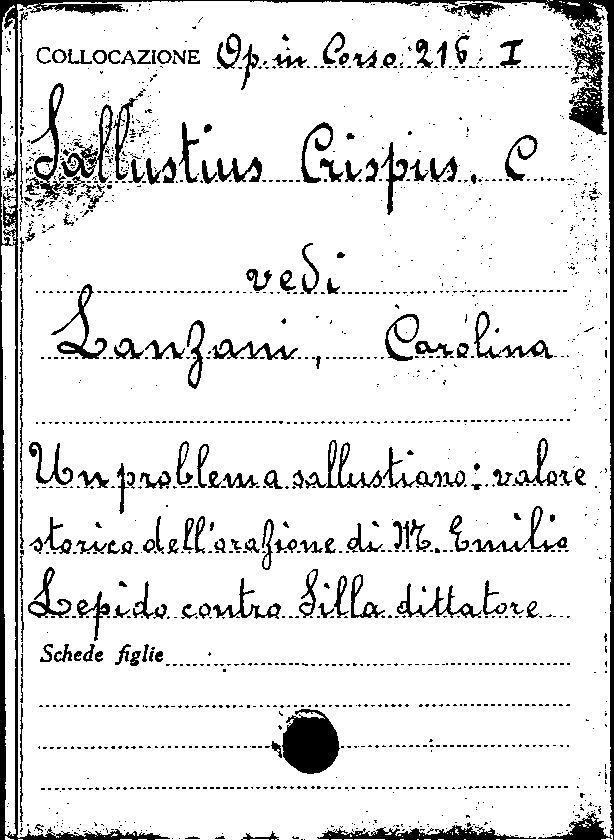 COLLOCAZIONE Op. in Corso 216 I
Sallustius Crispus, C
vedi
Lanzani, Carolina
Un problema sallustiano: valore
storico dell'orazione di M. Emilio
Lepido contro Silla dittatore
Schede figlie